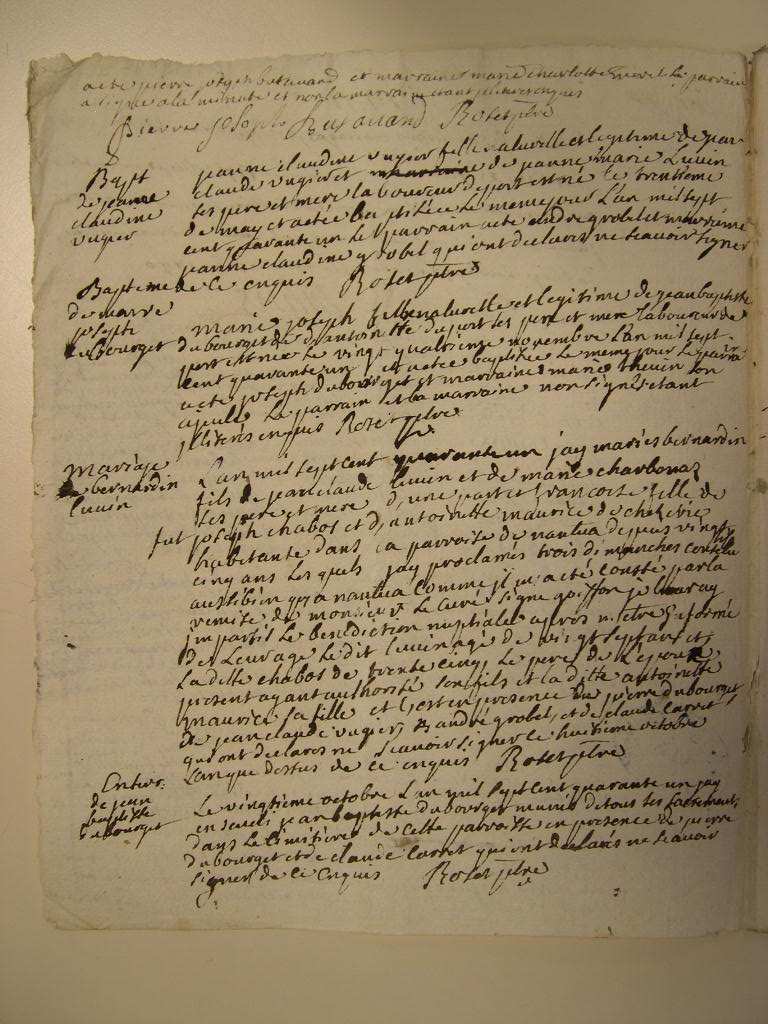 acte pierre joseph et marraine marie charlotte le parrain
a signé a la minute et non la marraine enquis
pierre joseph Roset ptre
Bapt
de jeanne
claudine
vugier
jeanne claudine vugier fille naturelle et legitime de jean
claude vugier et de jeanne marie Levvin
ses pere et mere laboureur de port est née le trentieme
de may et a etée baptisée le meme jour L'an mil sept
cent quarante un Le parrain a eté andré grobel et marraine
jeanne claudine grobel qui ont declarés ne scavoir signer
de ce enquis Roset ptre
Bapteme
de marie
joseph
dubourget
marie joseph fille naturelle et legitime de jean baptiste
dubourget et de antoinette du port ses pere et mere laboureur de
port est née le vingt quatrieme novembre L'an mil sept
cent quarante un et a etée baptisée le meme jour Le parrain
a eté joseph dubourget et marraine marie thevin son
ayeulle Le parrain et la marraine non signés etant
illiterés enquis Roset ptre
mariage
de bernardin
Levvin
L'an mil sept cent quarante un jay mariés bernardin
fils de jean claude Levvin et de marie charbonaz
ses pere et mere d'une part et francoise fille de
fut joseph chabos et d'antoinette maurice de
habitante dans la parroise de nantua depuis vingt
cinq ans Lesquels jay proclamés trois dimanches
aussi bien qu'a nantua comme il m'a etés constés par la
remise de monsieur Le curé signé goiffon je Leur ay
imparti Le benediction nuptiale apres m'etre informé
de Leur age Le dit Levvin agé de vingt sept ans et
La ditte chabos de trente cinq Le pere de L'epoux
present ayant authorisé son fils et la ditte antoinette
maurice sa fille et c'est en presence de pierre dubourget
de jean claude vugier, d'andré grobel, et de claude carret
qui ont declarés ne scavoir signer le huitieme octobre
L'an que dessus de ce enquis Roset ptre
Enterr.
de jean
baptiste
dubourget
Le vingtieme octobre L'an mil sept cent quarante un jay
enseveli jean baptiste dubourget munis de tous les sacrements
dans Le cimitiere de cette parroisse en presence de pierre
dubourget et de claude carret qui ont declarés ne scavoir
signer de ce enquis Roset ptre